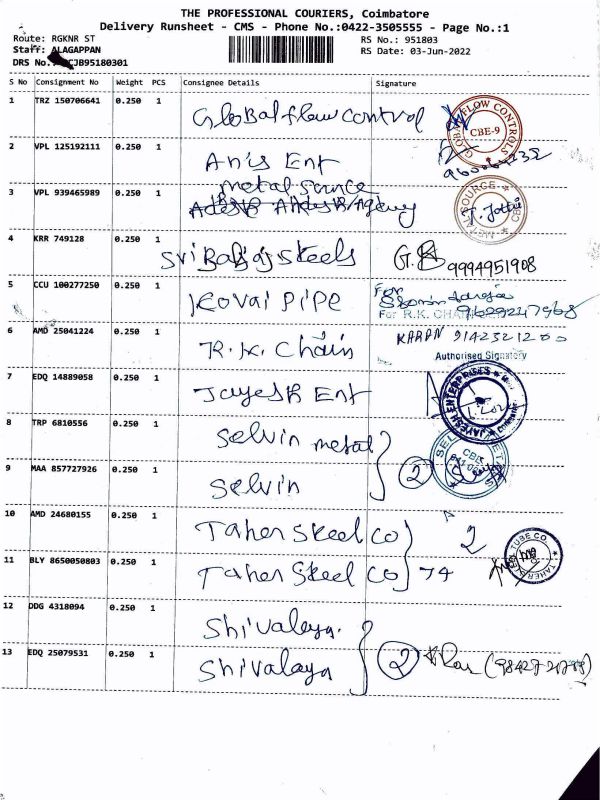 THE PROFESSIONAL COURIERS, Coimbatore
Delivery Runsheet - CMS - Phone No.:0422-3505555 - Page No.:1
Route: RGKNR ST
RS No.: 951803
Staff: ALAGAPPAN
RS Date: 03-Jun-2022
DRS No. CJB95180301
S No Consignment No Weight PCS Consignee Details Signature
1 TRZ 150706641 0.250 1 Global flow control
GLOBAL FLOW CONTROLS CBE-9
2 VPL 125192111 0.250 1 Anis Ent
metal source
3 VPL 939465989 0.250 1 Agency
METAL SOURCE CBE
4 KRR 749128 0.250 1 Sri Balaji Steels 9994951908
5 CCU 100277250 0.250 1 Kovai Pipe
For
9629247968
For R.K. CHAIN
6 AMD 25041224 0.250 1 R.K. Chain KARAN 9142321200
Authorised Signatory
7 EDQ 14889058 0.250 1 Jayesh Ent
JAYESH ENTERPRISES
8 TRP 6810556 0.250 1 Selvin metal
9 MAA 857727926 0.250 1 Selvin 2
10 AMD 24680155 0.250 1 Taher Steel Co 2
TAHER STEEL TUBE CO
11 BLY 8650050803 0.250 1 Taher Steel Co 74
12 DDG 4318094 0.250 1 Shivalaya.
13 EDQ 25079531 0.250 1 Shivalaya 2